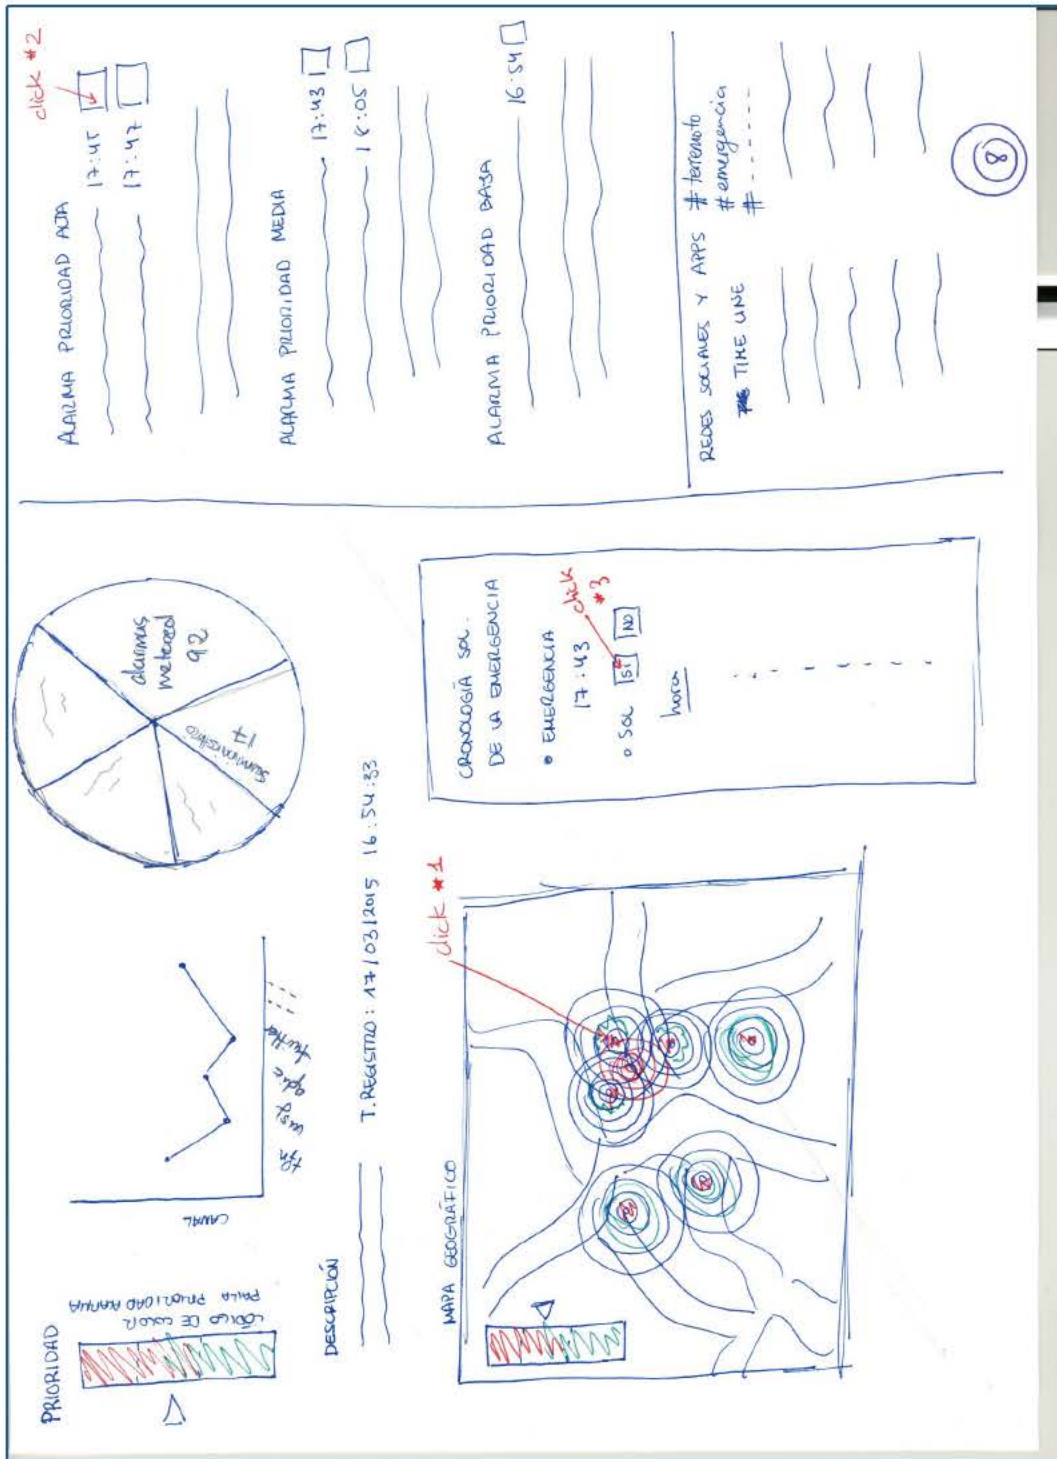 PRIORIDAD
CÓDIGO DE COLOR
PARA PRIORIDAD ALARMA
CANAL
tfn
twitter
alarmas
meteorol
92
suministro
17
DESCRIPCIÓN
T. REGISTRO: 17/03/2015 16:54:33
MAPA GEOGRÁFICO
click #1
CRONOLOGÍA SOL.
DE LA EMERGENCIA
• EMERGENCIA
17:43
click
#3
○ SOL SI NO
hora
click #2
ALARMA PRIORIDAD ALTA
17:45
17:47
ALARMA PRIORIDAD MEDIA
17:43
18:05
ALARMA PRIORIDAD BAJA
16:54
REDES SOCIALES Y APPS #terremoto
#emergencia
#------
TIME LINE
8